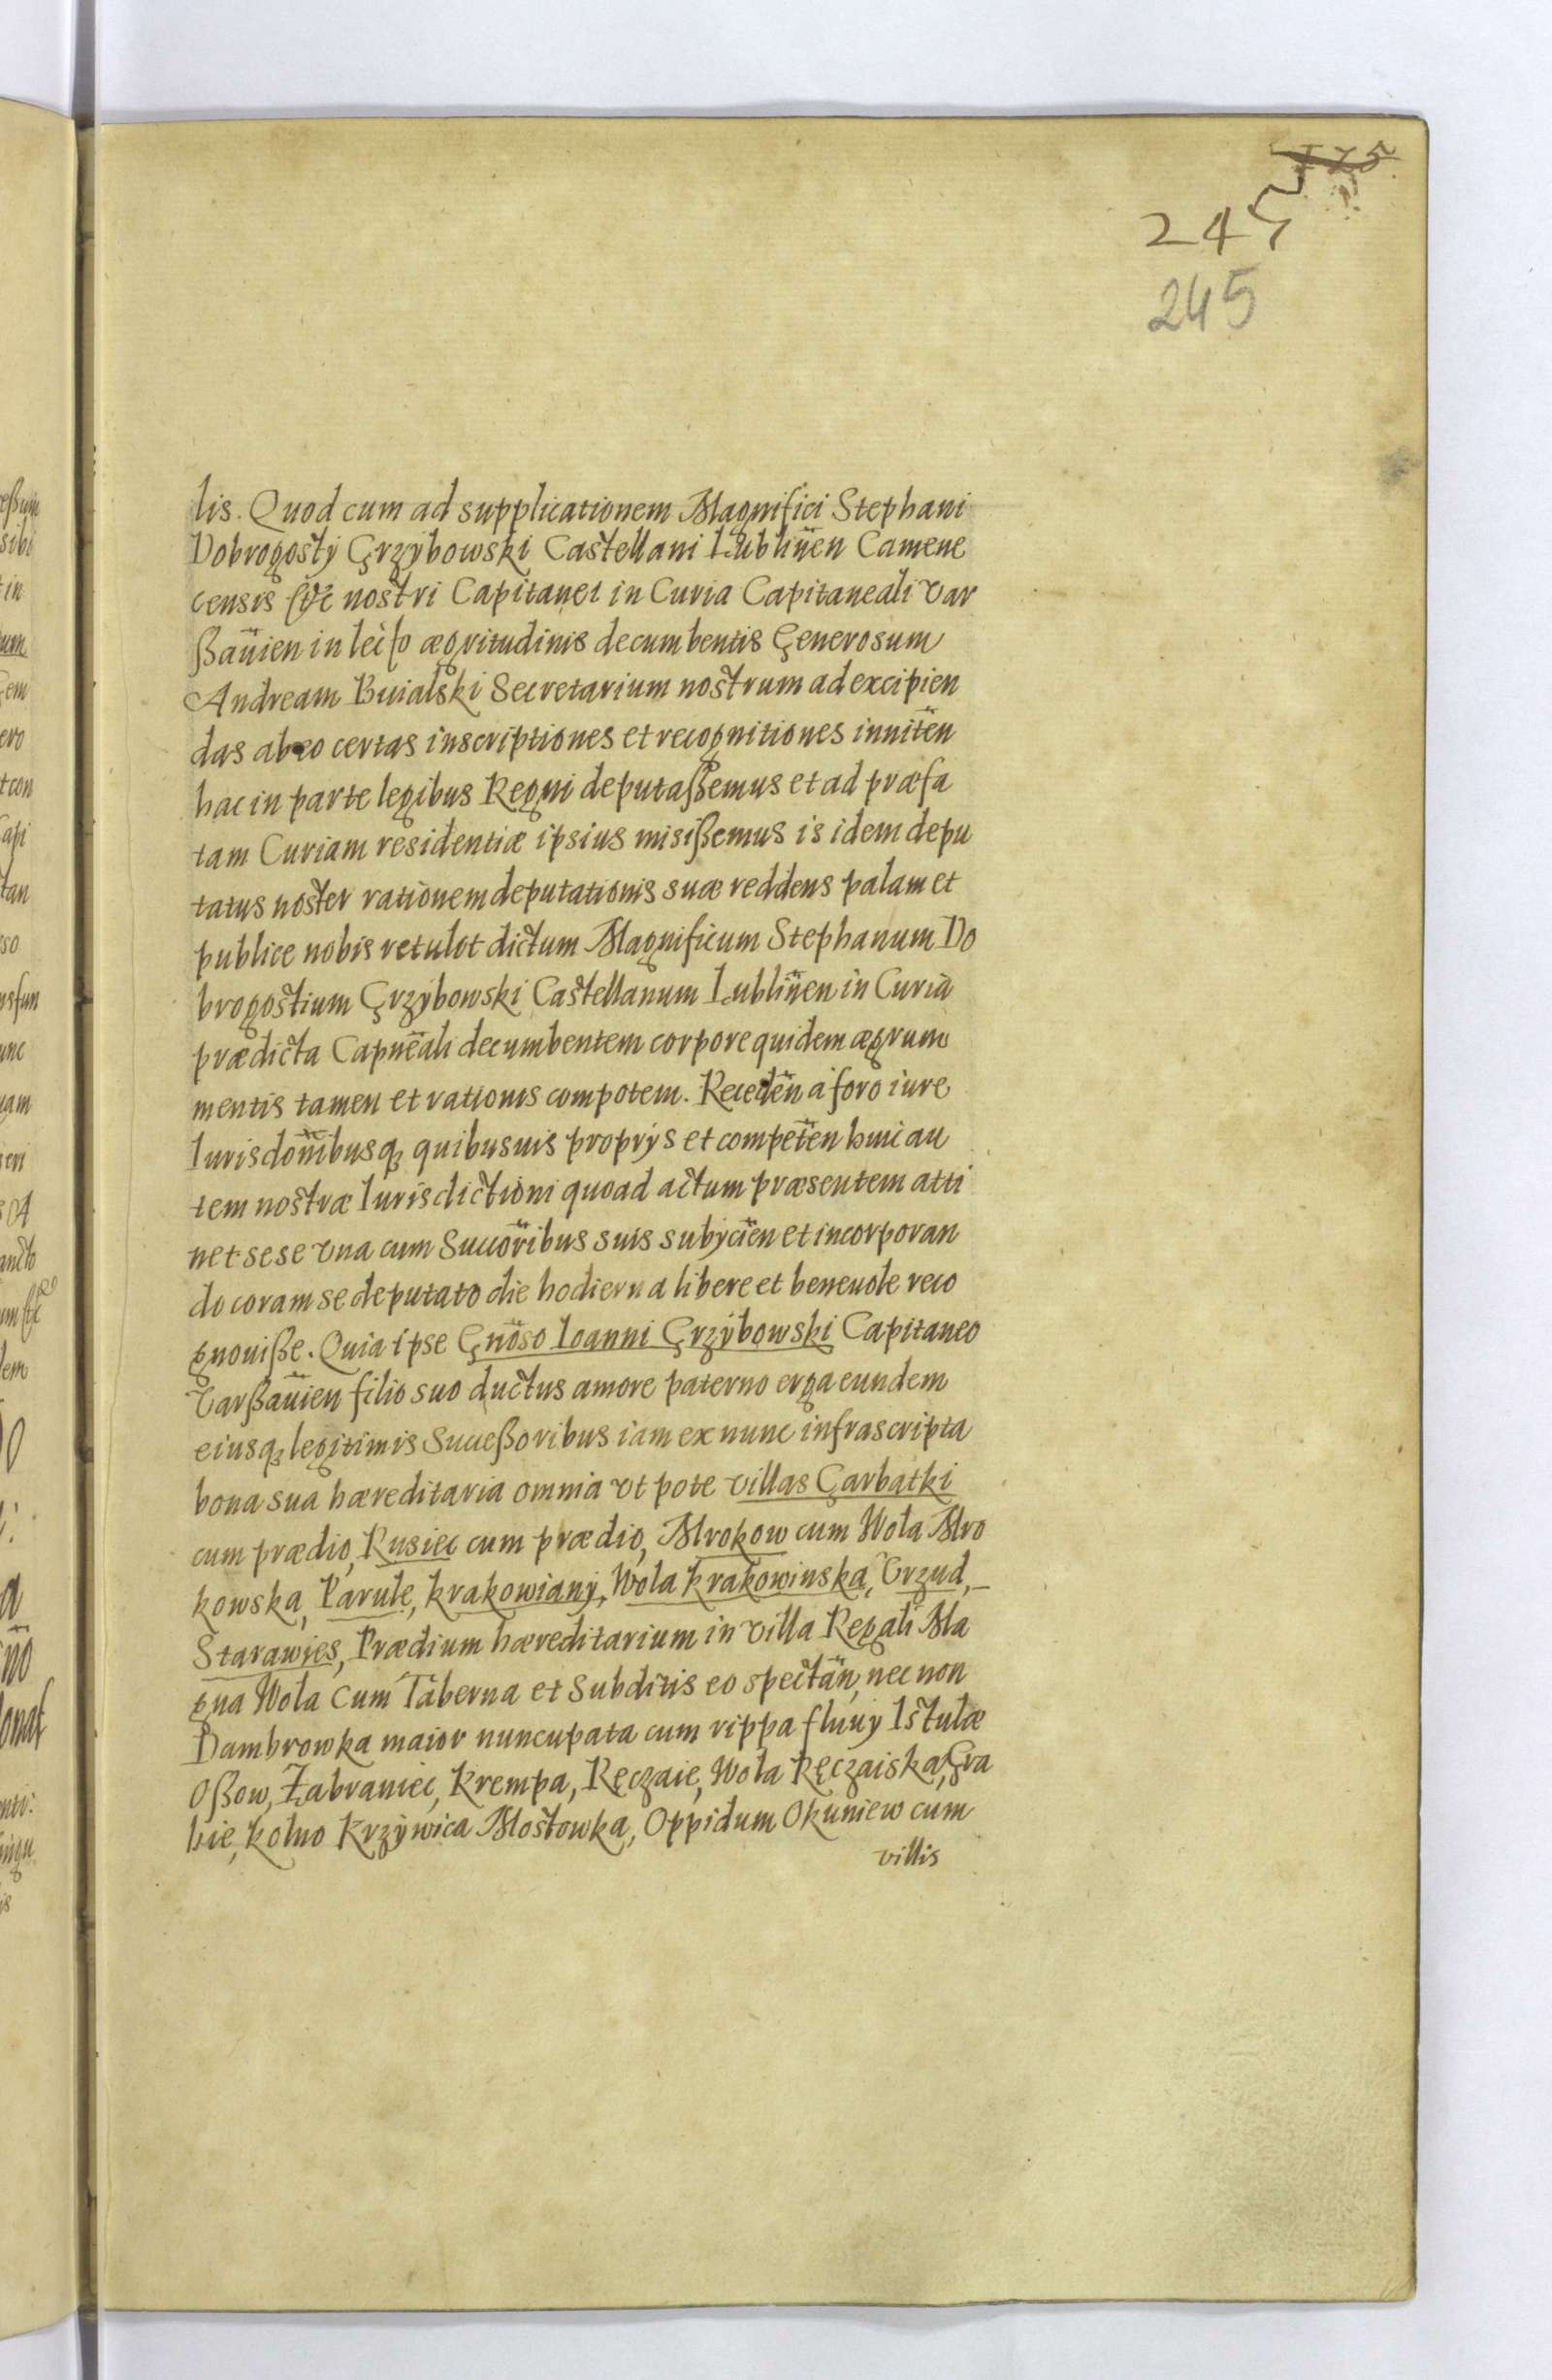 175
245
245
lis. Quod cum ad supplicationem Magnifici Stephani
Dobrogosty Grzybowski Castellani Lublinen Camene
censis nostri Capitanei in Curia Capitaneali Var
ßauien in lecto ægritudinis decumbentis Generosum
Andream Buialski Secretarium nostrum ad excipien
das ab eo certas inscriptiones et recognitiones inniten
hac in parte legibus Regni deputaßemus et ad præfa
tam Curiam residentiæ ipsius misißemus is idem depu
tatus noster rationem deputationis suæ reddens palam et
publice nobis retulit dictum Magnificum Stephanum Do
brogostium Grzybowski Castellanum Lublinen in Curia
prædicta Capneali decumbentem corpore quidem ægrum
mentis tamen et rationis compotem. Receden a foro iure
Iurisdonibusq quibusuis proprys et competen huic au
tem nostræ Iurisdictioni quoad actum præsentem atti
net sese vna cum Succoribus suis subycien et incorporan
do coram se deputato die hodierna libere et beneuole reco
gnouiße. Quia ipse Gnoso Ioanni Grzybowski Capitaneo
Varßauien filio suo ductus amore paterno erga eundem
eiusq legitimis Succeßoribus iam ex nunc infrascripta
bona sua hæreditaria omnia vt pote villas Garbatki
cum prædio, Rusiec cum prædio, Mrokow cum Wola Mro
kowska, Parule, Krakowiany, Wola Krakowinska, Vrzud,
Starawies, Prædium hæreditarium in villa Regali Ma
gna Wola cum Taberna et Subditis eo spectan, nec non
Dambrowka maior nuncupata cum rippa fluuy Istulæ
Oßow, Zabraniec, Krempa, Ręczaie, Wola Ręczaiska, Gra
bie, Kolno Krzywica Mostowka, Oppidum Okuniew cum
villis